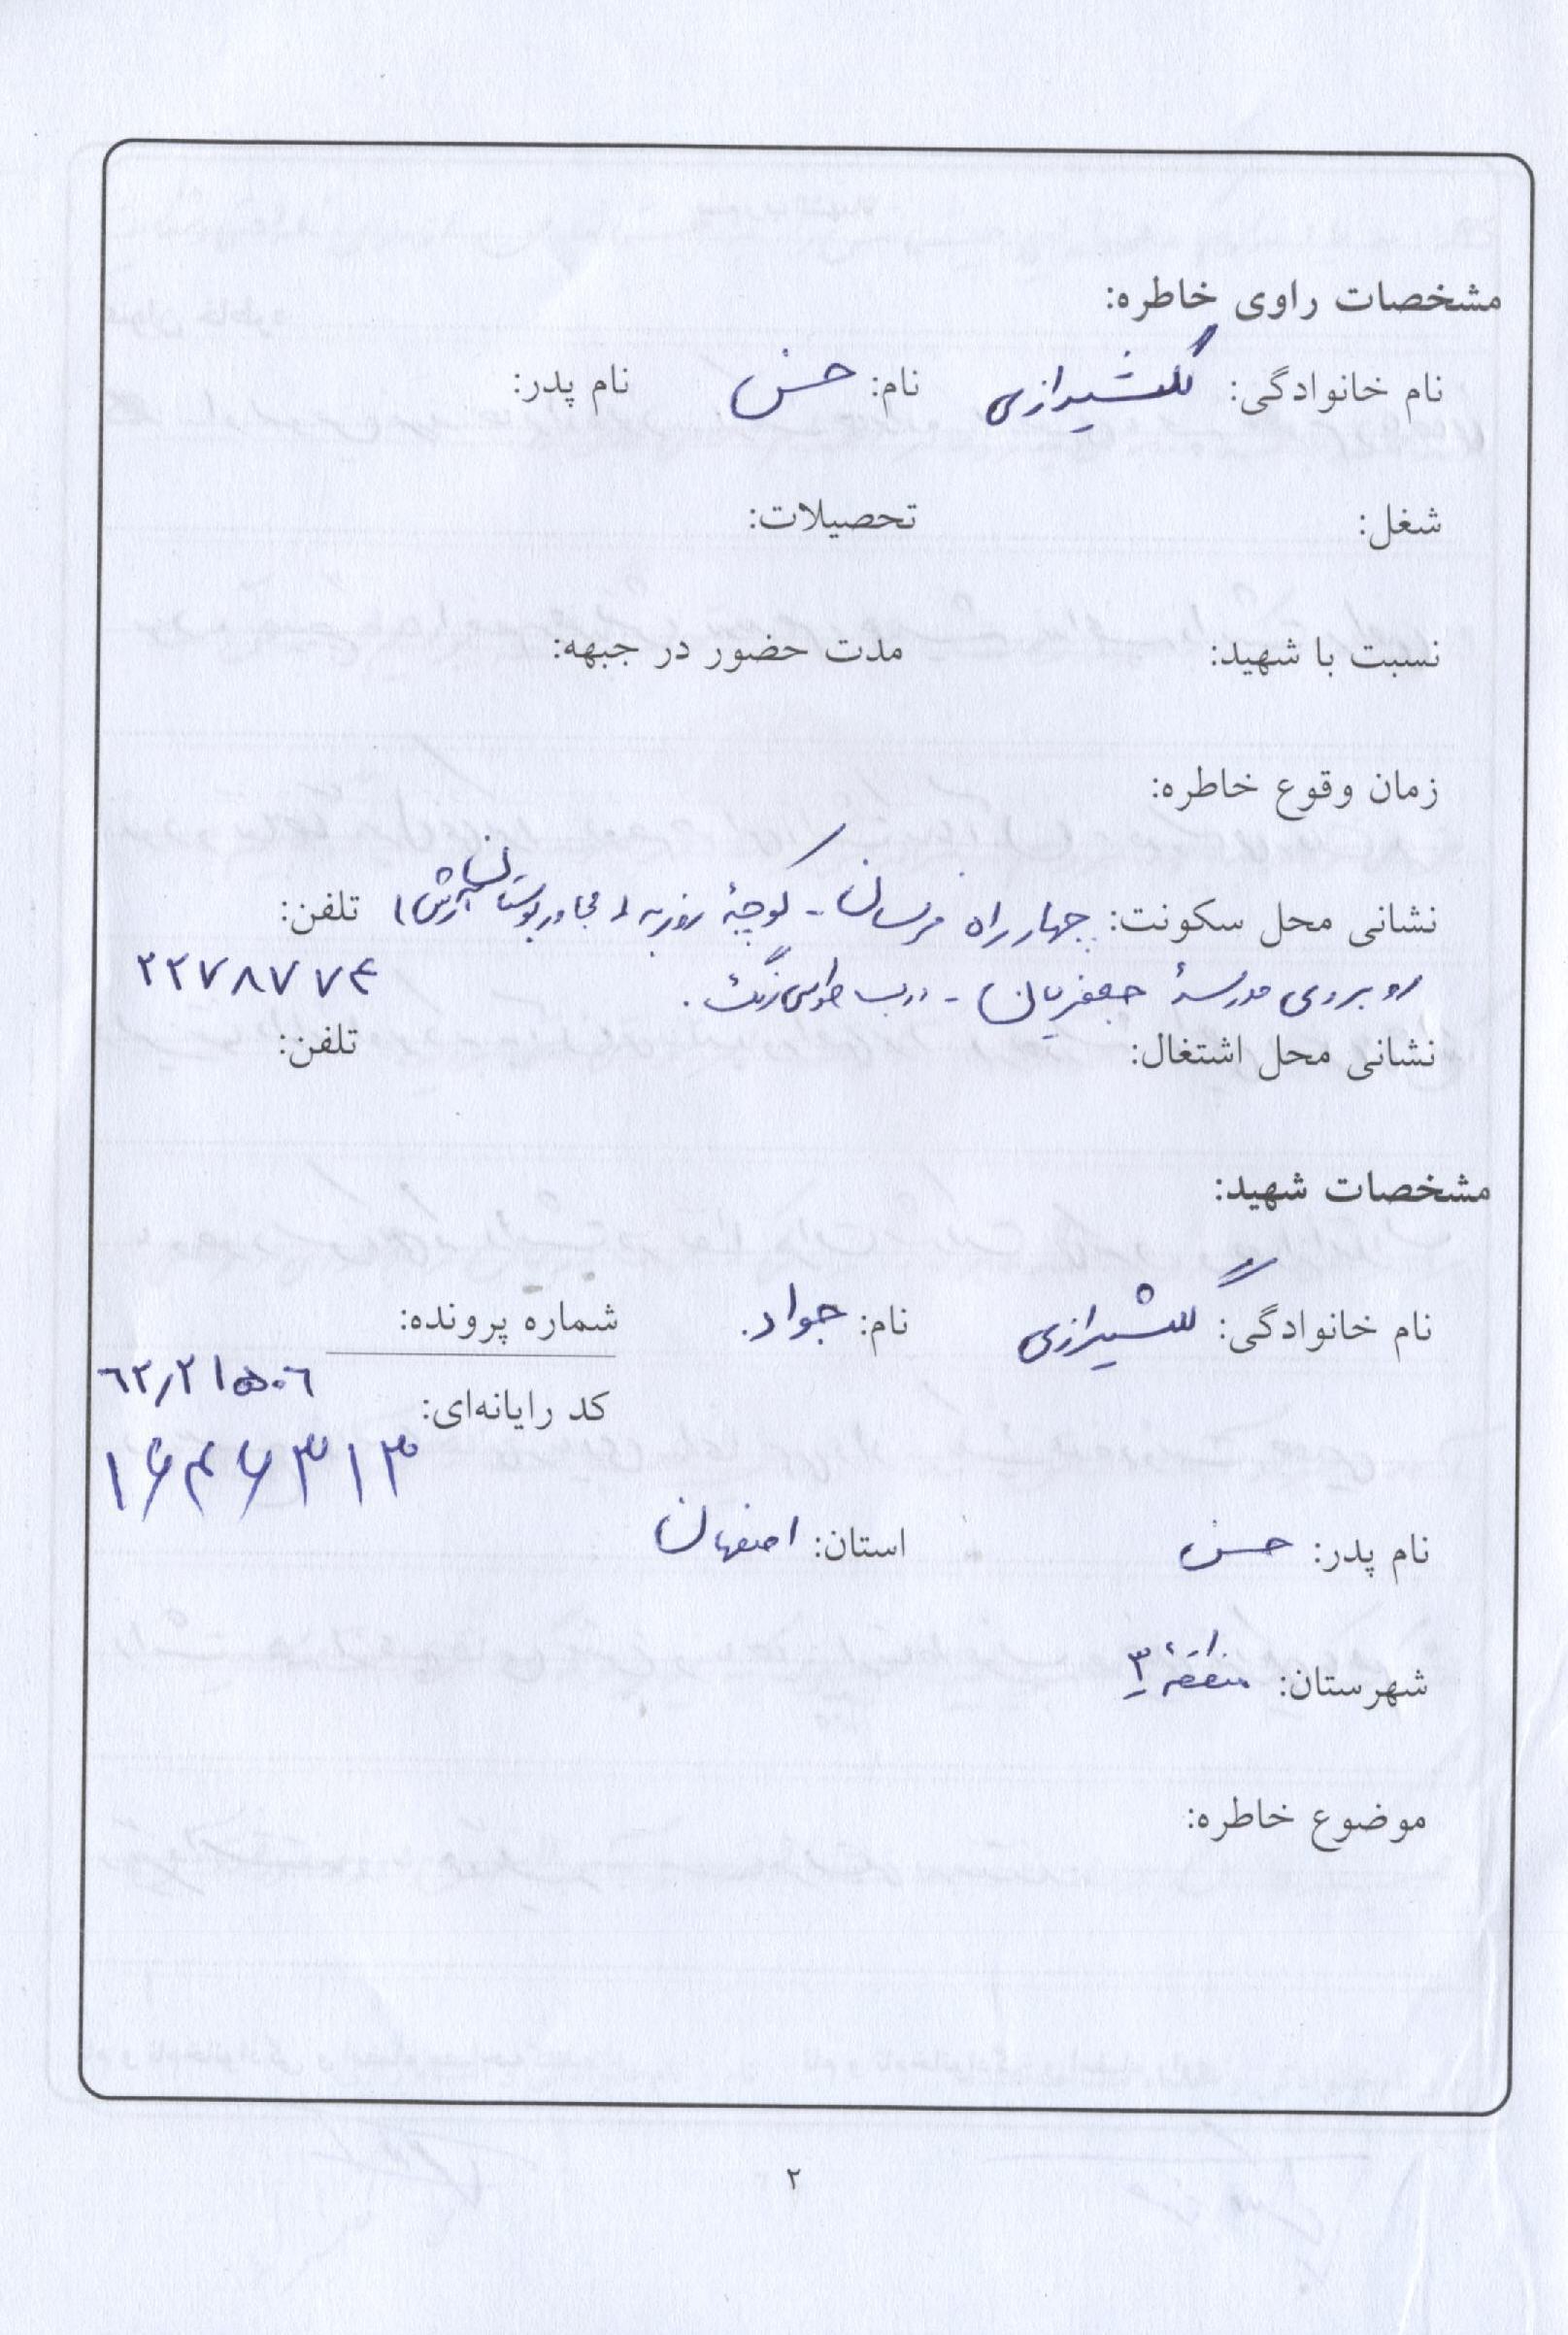 مشخصات راوی خاطره:
نام خانوادگی: گلشیرازی نام: حسن نام پدر:
شغل: تحصیلات:
نسبت با شهید: مدت حضور در جبهه:
زمان وقوع خاطره:
نشانی محل سکونت: چهارراه فرسان - کوچهٔ روزبه (مجاور بوستان) تلفن:
روبروی مدرسهٔ جعفریان - درب طوسی رنگ. ۲۲۷۸۷۷۴
نشانی محل اشتغال: تلفن:
مشخصات شهید:
نام خانوادگی: گلشیرازی نام: جواد. شماره پرونده:
۶۲٫۲۱۵۰۶
کد رایانه‌ای:
۱۶۴۶۳۱۳
نام پدر: حسن استان: اصفهان
شهرستان: منطقهٔ ۳
موضوع خاطره:
۲